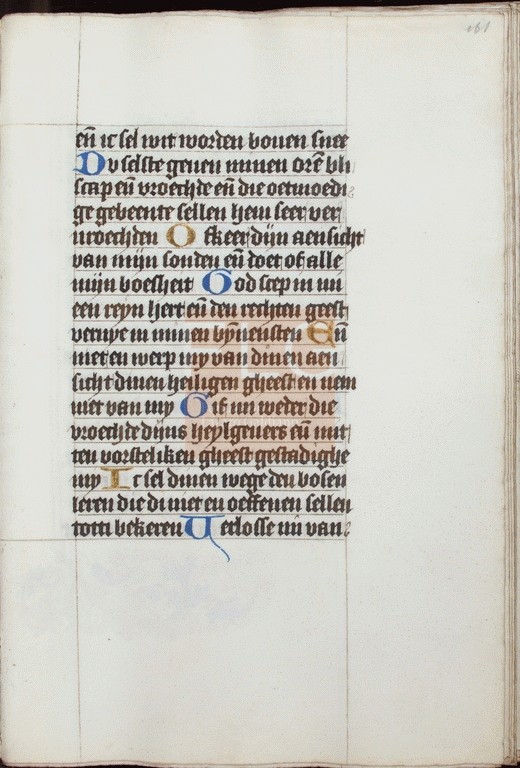 161
eñ ic sel wit worden bouen snee
Du selste geuen minen orē bli
scap eñ vroechde eñ die oetmoedi
ge gebeente sellen hem seer ver
vroechden Ofkeer dijn aensicht
van mijn sonden eñ doet of alle
mijn boesheit God scep in mi
een reyn hert eñ den rechten geest
vernye in minen bỹnensten Eñ
niet en werp my van dinen aen
sicht dinen heiligen gheest en nem
niet van my Gif mi weder die
vroechde dijns heylgeuers eñ mit
ten vorsteliken gheest gestadighe
my Ic sel dinen wege den bosen
leren die di niet en oeffenen sellen
totti bekeren Verlosse mi van